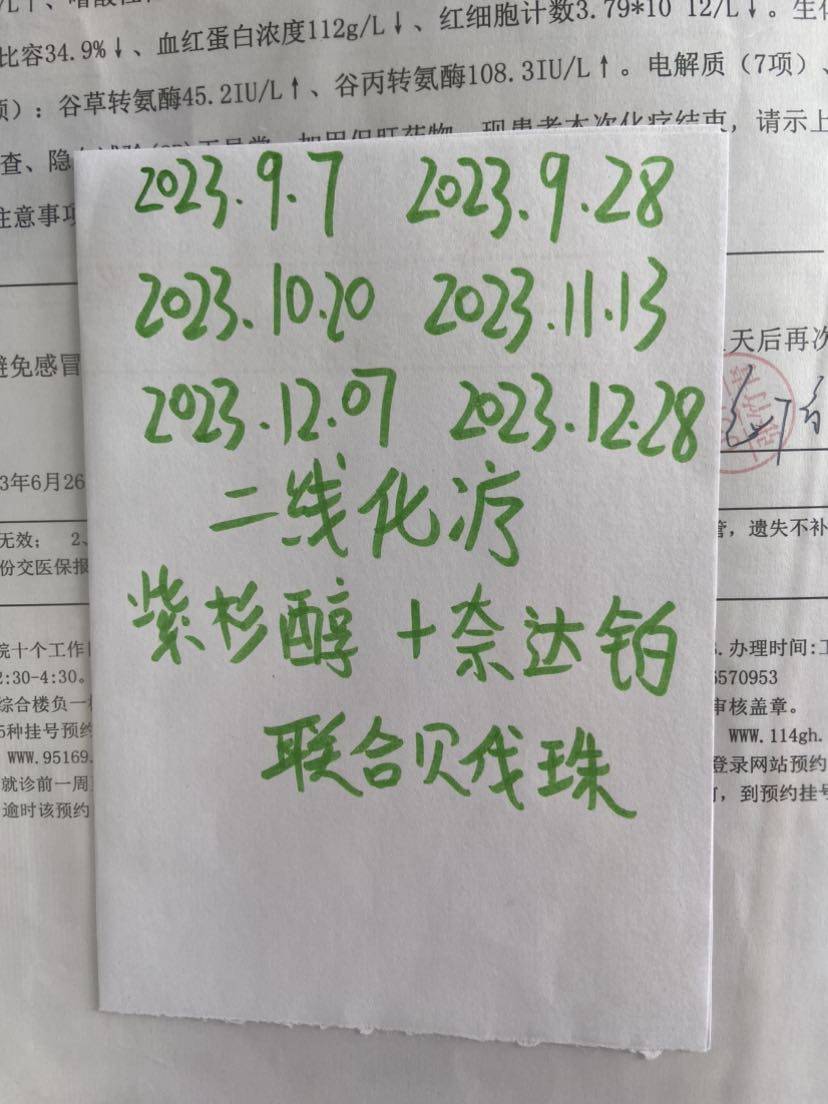 比容34.9%↓、血红蛋白浓度112g/L↓、红细胞计数3.79*10 12/L↓。生化
项）：谷草转氨酶45.2IU/L↑、谷丙转氨酶108.3IU/L↑。电解质（7项）、
查、隐
现患者本次化疗结束，请示上
注意事项
2023.9.7 2023.9.28
2023.10.20 2023.11.13
天后再次
避免感冒
2023.12.07 2023.12.28
3年6月26
二线化疗
无效； 2、
管，遗失不补
份交医保报
紫杉醇+奈达铂
院十个工作日
. 办理时间:工
2:30-4:30。
6570953
综合楼负一楼
审核盖章。
5种挂号预约
联合贝伐珠
WWW.95169.
WWW.114gh.
就诊前一周
登录网站预约
逾时该预约
，到预约挂号